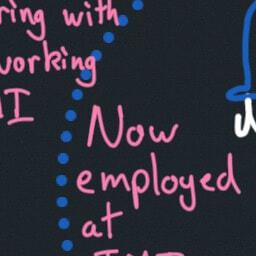 ring with
working
I
Now
employed
at